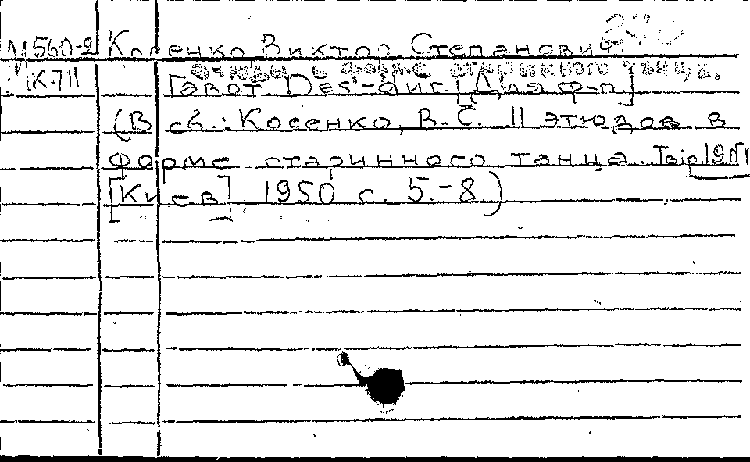 М560-2 Косенко Виктор Степанович
К-711 Этюды в форме старинного танца.
Гавот Des-dur [Для ф-п]
(В сб.: Косенко, В.С. 11 этюдов в
форме старинного танца.
[Киев] 1950 с. 5.-8)